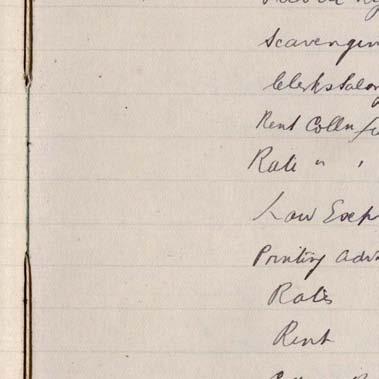 Scavengin
Clerks Salar
Rent Colln
Rate " "
Law Exp
Printing adv
Rates
Rent